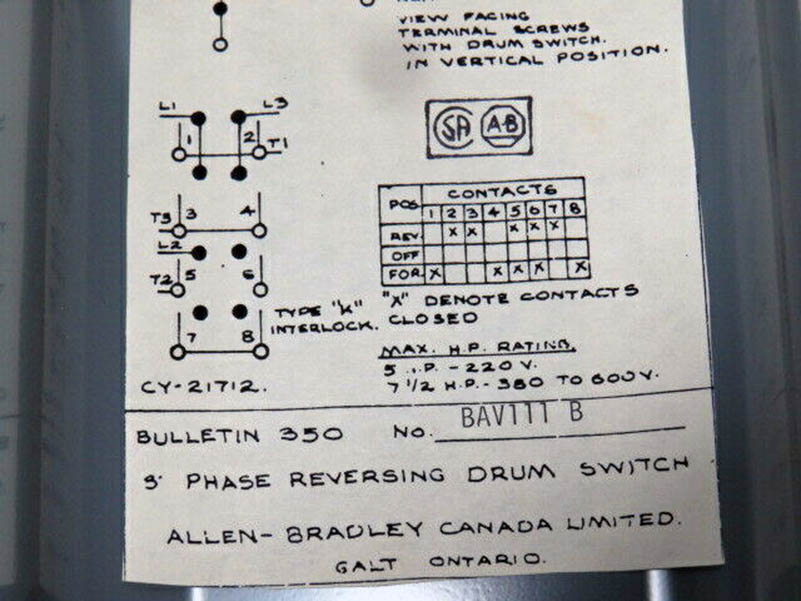 VIEW FACING
TERMINAL SCREWS
WITH DRUM SWITCH.
IN VERTICAL POSITION.
L1 L3
1 2 T1
T3 3 4
L2
T2 5 6
7 8
TYPE "K"
INTERLOCK.
CY-21712.
SA A-B
POS. CONTACTS
1 2 3 4 5 6 7 8
REV. X X X X X
OFF
FOR. X X X X X
"X" DENOTE CONTACTS
CLOSED
MAX. H.P. RATING.
5 .P. - 220 V.
7 1/2 H.P. - 380 TO 600 V.
BULLETIN 350 NO. BAV111 B
3 PHASE REVERSING DRUM SWITCH
ALLEN-BRADLEY CANADA LIMITED.
GALT ONTARIO.